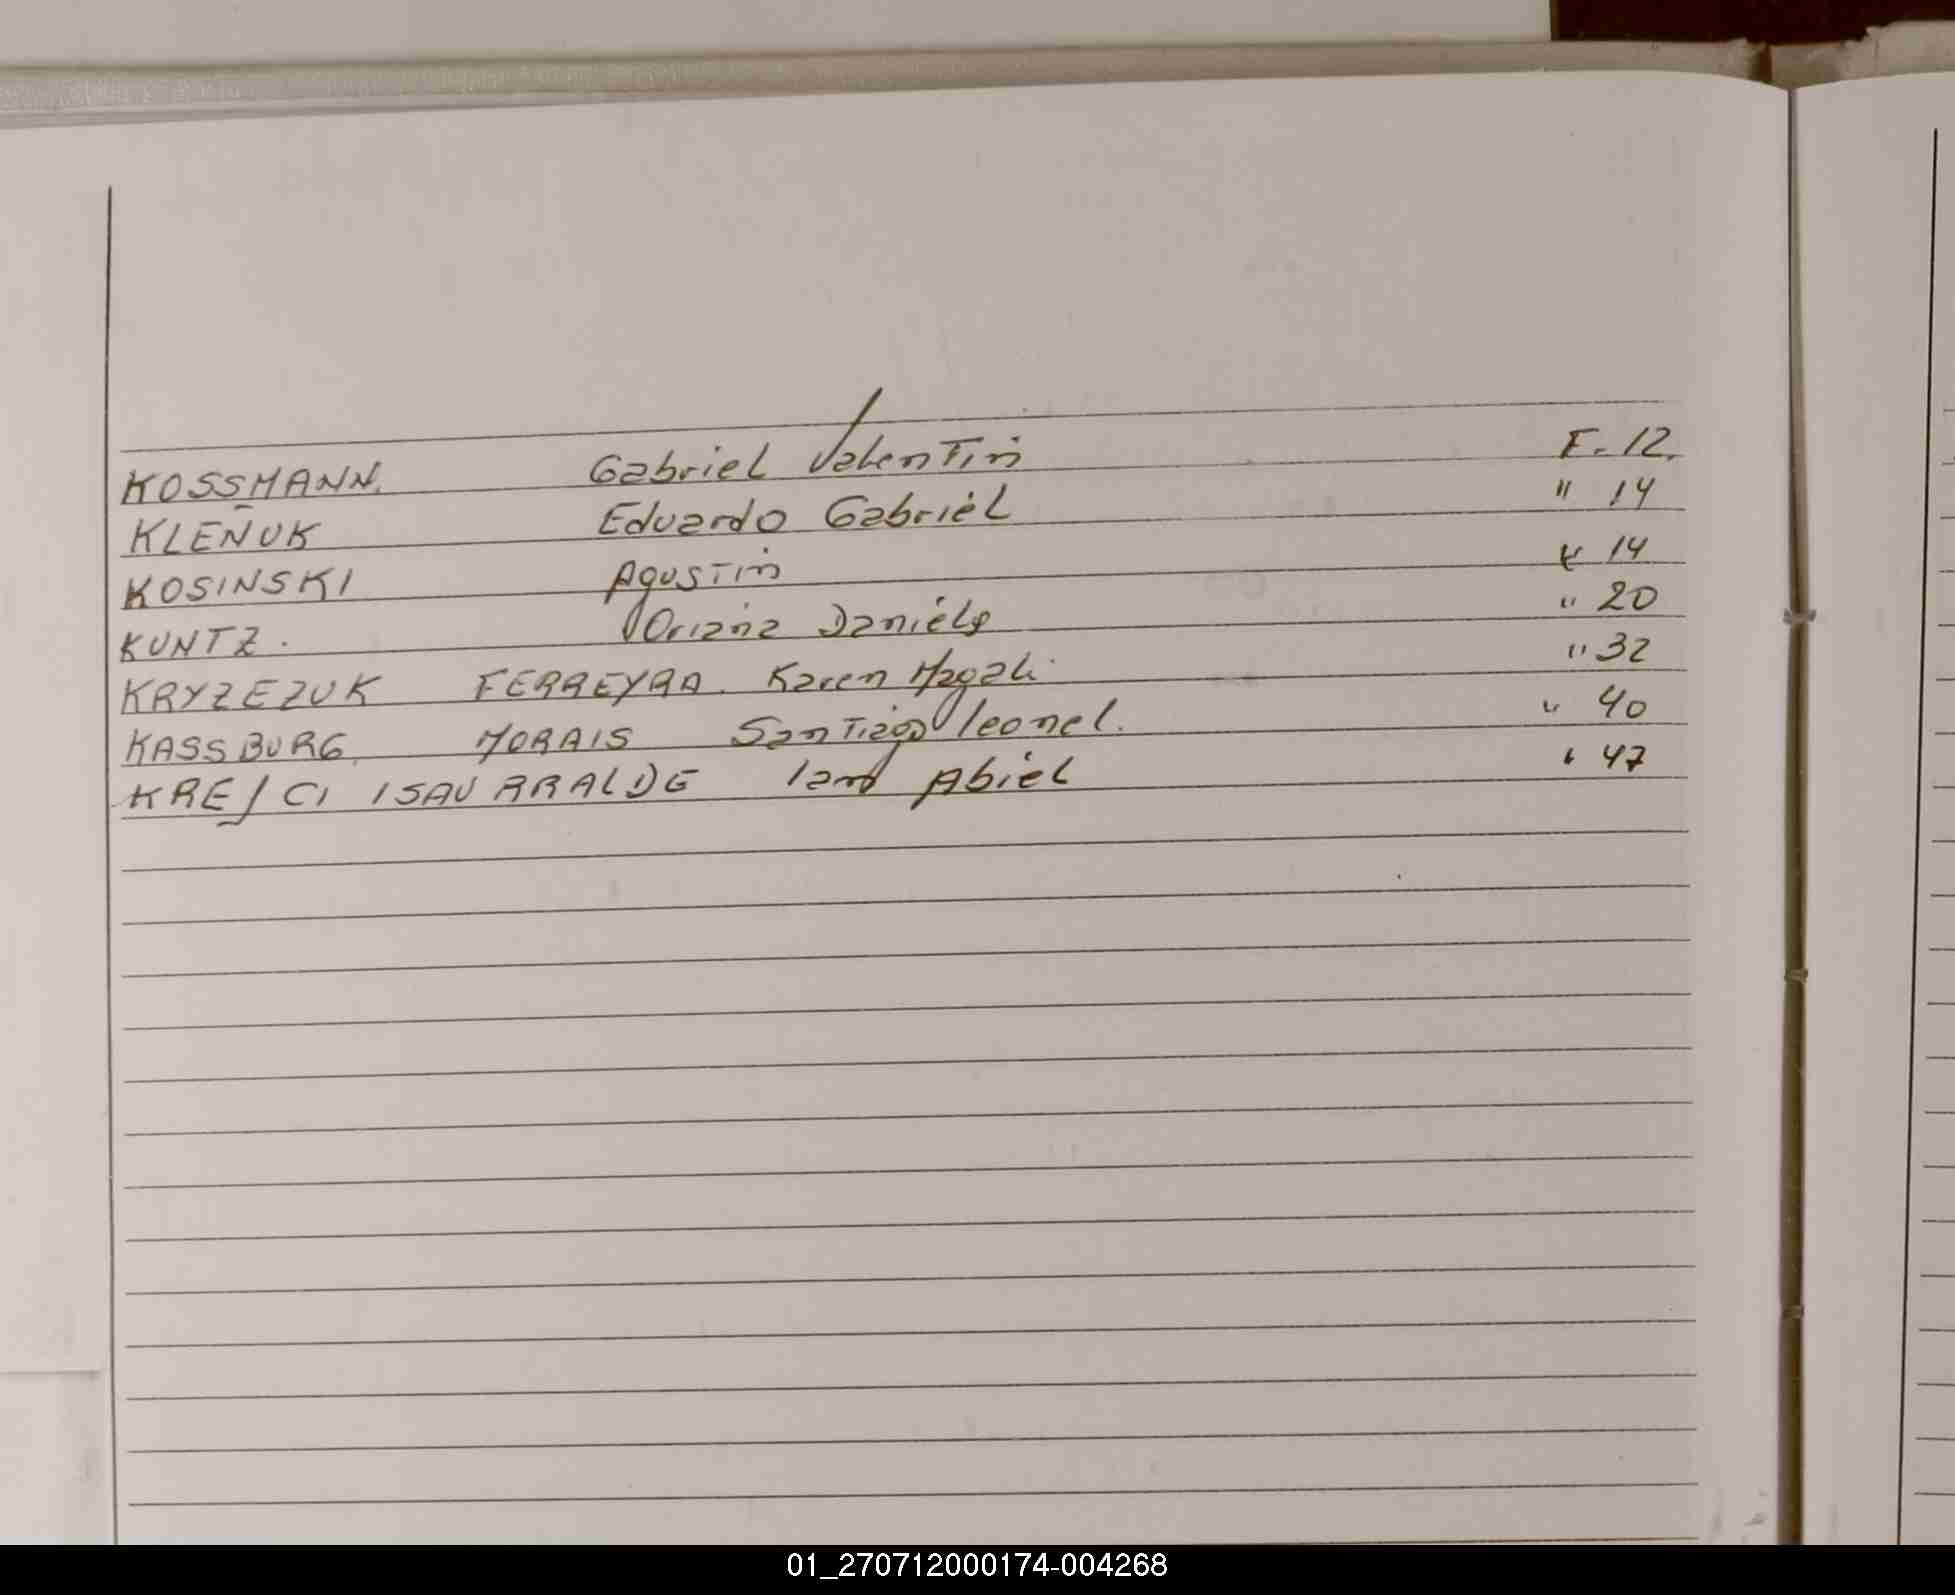 KOSSMANN. Gabriel Valentin F. 12.
KLEÑUK Eduardo Gabriel " 14
KOSINSKI Agustin " 14
KUNTZ. Oriana Daniela " 20
KRYZEZUK FERREYRA. Karen Magali " 32
KASSBURG. MORAIS Santiago leonel. " 40
KREJCI ISAURRALDE Ian Abiel " 47
01_270712000174-004268